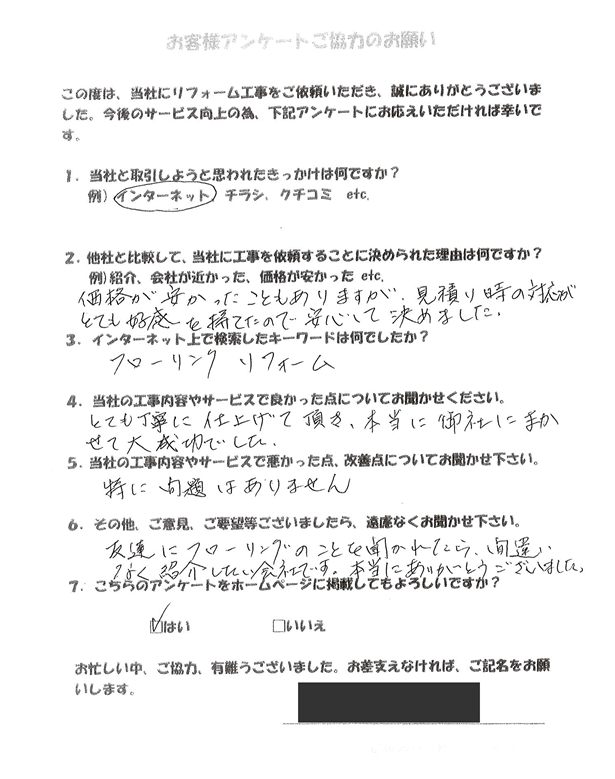 お客様アンケートご協力のお願い
この度は、当社にリフォーム工事をご依頼いただき、誠にありがとうございま
した。今後のサービス向上の為、下記アンケートにお応えいただければ幸いで
す。
1. 当社と取引しようと思われたきっかけは何ですか？
例）インターネット チラシ、クチコミ etc.
2. 他社と比較して、当社に工事を依頼することに決められた理由は何ですか？
例）紹介、会社が近かった、価格が安かった etc.
価格が安かったこともありますが、見積り時の対応が
とても好感を持てたので安心して決めました。
3. インターネット上で検索したキーワードは何でしたか？
フローリング リフォーム
4. 当社の工事内容やサービスで良かった点についてお聞かせください。
とても丁寧に仕上げて頂き、本当に御社にまか
せて大成功でした。
5. 当社の工事内容やサービスで悪かった点、改善点についてお聞かせ下さい。
特に問題はありません
6. その他、ご意見、ご要望等ございましたら、遠慮なくお聞かせ下さい。
友達にフローリングのことを聞かれたら、間違い
なく紹介したい会社です。本当にありがとうございました。
7. こちらのアンケートをホームページに掲載してもよろしいですか？
☑はい □いいえ
お忙しい中、ご協力、有難うございました。お差支えなければ、ご記名をお願
いします。